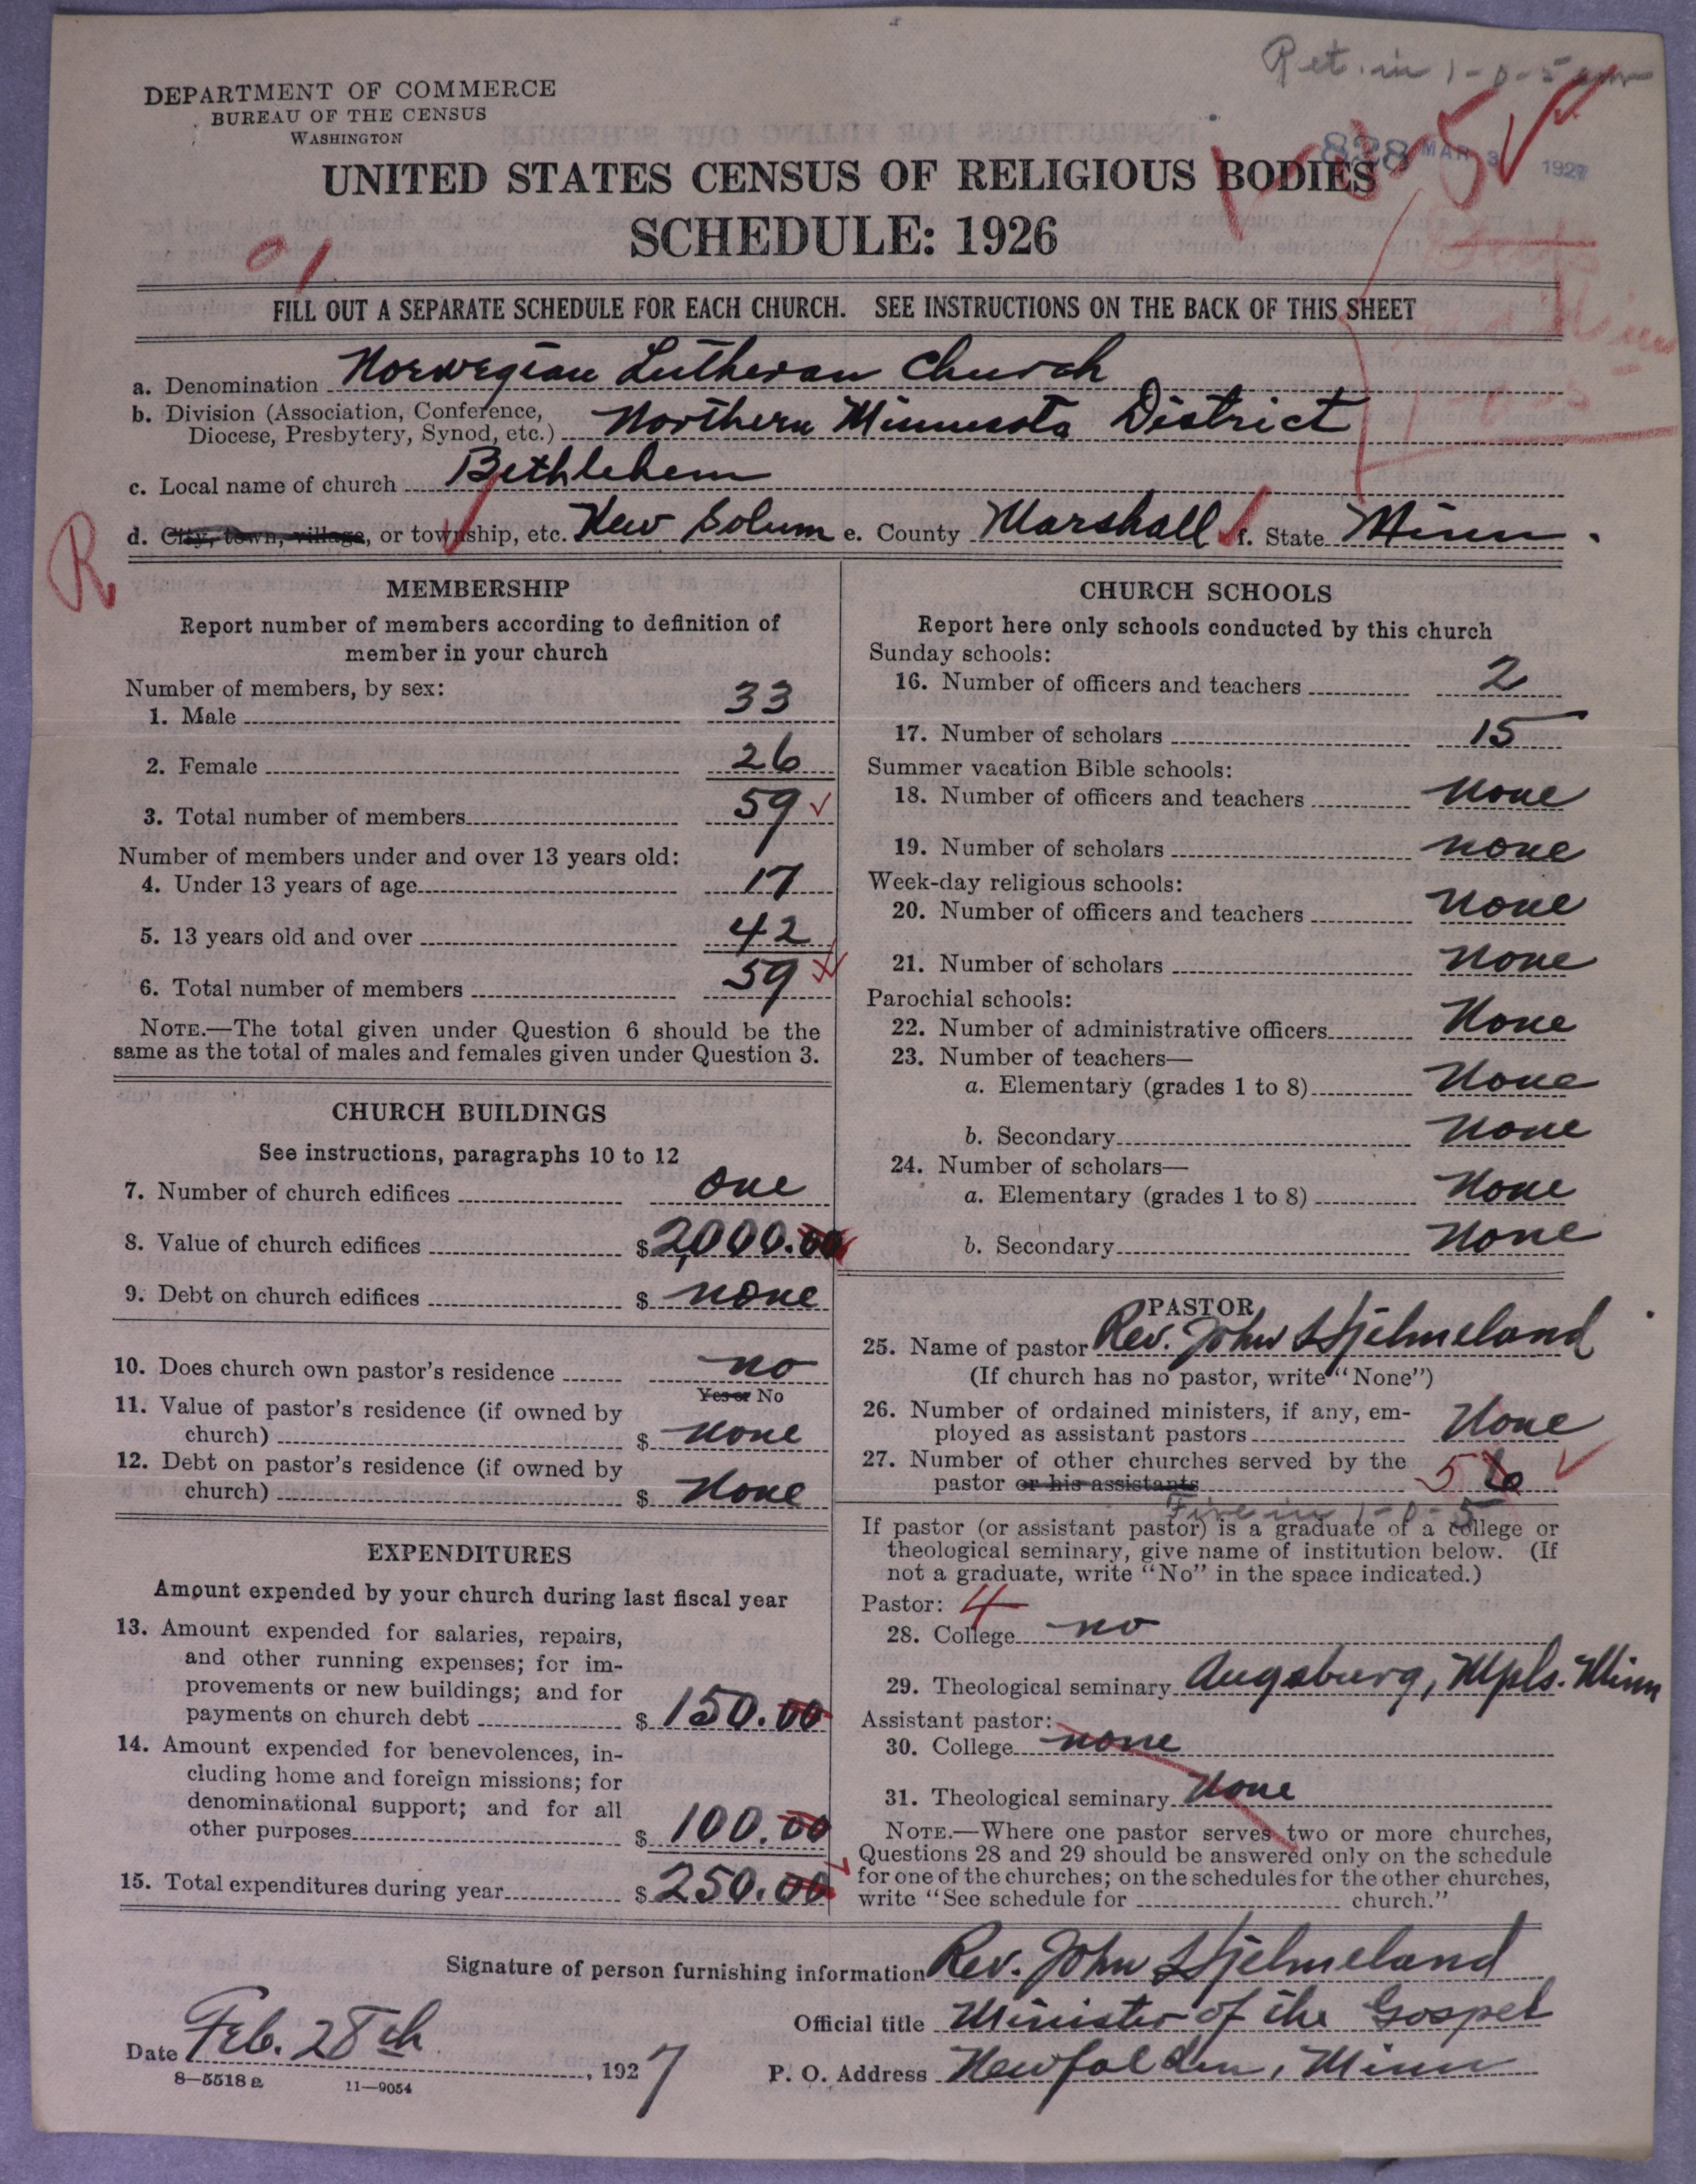 Ret. in 1-0-5
DEPARTMENT OF COMMERCE
BUREAU OF THE CENSUS
WASHINGTON
828 MAR 3 1927
UNITED STATES CENSUS OF RELIGIOUS BODIES
SCHEDULE: 1926
01
FILL OUT A SEPARATE SCHEDULE FOR EACH CHURCH. SEE INSTRUCTIONS ON THE BACK OF THIS SHEET
a. Denomination Norwegian Lutheran Church
b. Division (Association, Conference,
Diocese, Presbytery, Synod, etc.) Northern Minnesota District
c. Local name of church Bethlehem
d. City, town, village, or township, etc. New Solum e. County Marshall f. State Minn.
R
MEMBERSHIP
Report number of members according to definition of
member in your church
Number of members, by sex:
1. Male 33
2. Female 26
3. Total number of members 59
Number of members under and over 13 years old:
4. Under 13 years of age 17
5. 13 years old and over 42
6. Total number of members 59
NOTE.—The total given under Question 6 should be the
same as the total of males and females given under Question 3.
CHURCH BUILDINGS
See instructions, paragraphs 10 to 12
7. Number of church edifices One
8. Value of church edifices $2,000.00
9. Debt on church edifices $ none
10. Does church own pastor's residence no
Yes or No
11. Value of pastor's residence (if owned by
church) $ None
12. Debt on pastor's residence (if owned by
church) $ None
EXPENDITURES
Amount expended by your church during last fiscal year
13. Amount expended for salaries, repairs,
and other running expenses; for im-
provements or new buildings; and for
payments on church debt $ 150.00
14. Amount expended for benevolences, in-
cluding home and foreign missions; for
denominational support; and for all
other purposes $ 100.00
15. Total expenditures during year $ 250.00
CHURCH SCHOOLS
Report here only schools conducted by this church
Sunday schools:
16. Number of officers and teachers 2
17. Number of scholars 15
Summer vacation Bible schools:
18. Number of officers and teachers None
19. Number of scholars none
Week-day religious schools:
20. Number of officers and teachers None
21. Number of scholars None
Parochial schools:
22. Number of administrative officers None
23. Number of teachers—
a. Elementary (grades 1 to 8) None
b. Secondary None
24. Number of scholars—
a. Elementary (grades 1 to 8) None
b. Secondary None
PASTOR
25. Name of pastor Rev. John Hjelmeland
(If church has no pastor, write "None")
26. Number of ordained ministers, if any, em-
ployed as assistant pastors None
27. Number of other churches served by the
pastor or his assistants 5 6
Five in 1-0-5
If pastor (or assistant pastor) is a graduate of a college or
theological seminary, give name of institution below. (If
not a graduate, write "No" in the space indicated.)
Pastor: 4
28. College no
29. Theological seminary Augsburg, Mpls. Minn
Assistant pastor:
30. College none
31. Theological seminary None
NOTE.—Where one pastor serves two or more churches,
Questions 28 and 29 should be answered only on the schedule
for one of the churches; on the schedules for the other churches,
write "See schedule for church."
Signature of person furnishing information Rev. John Hjelmeland
Official title Minister of the Gospel
Date Feb. 28th, 1927
P. O. Address Newfolden, Minn
8—5518 a 11—9054